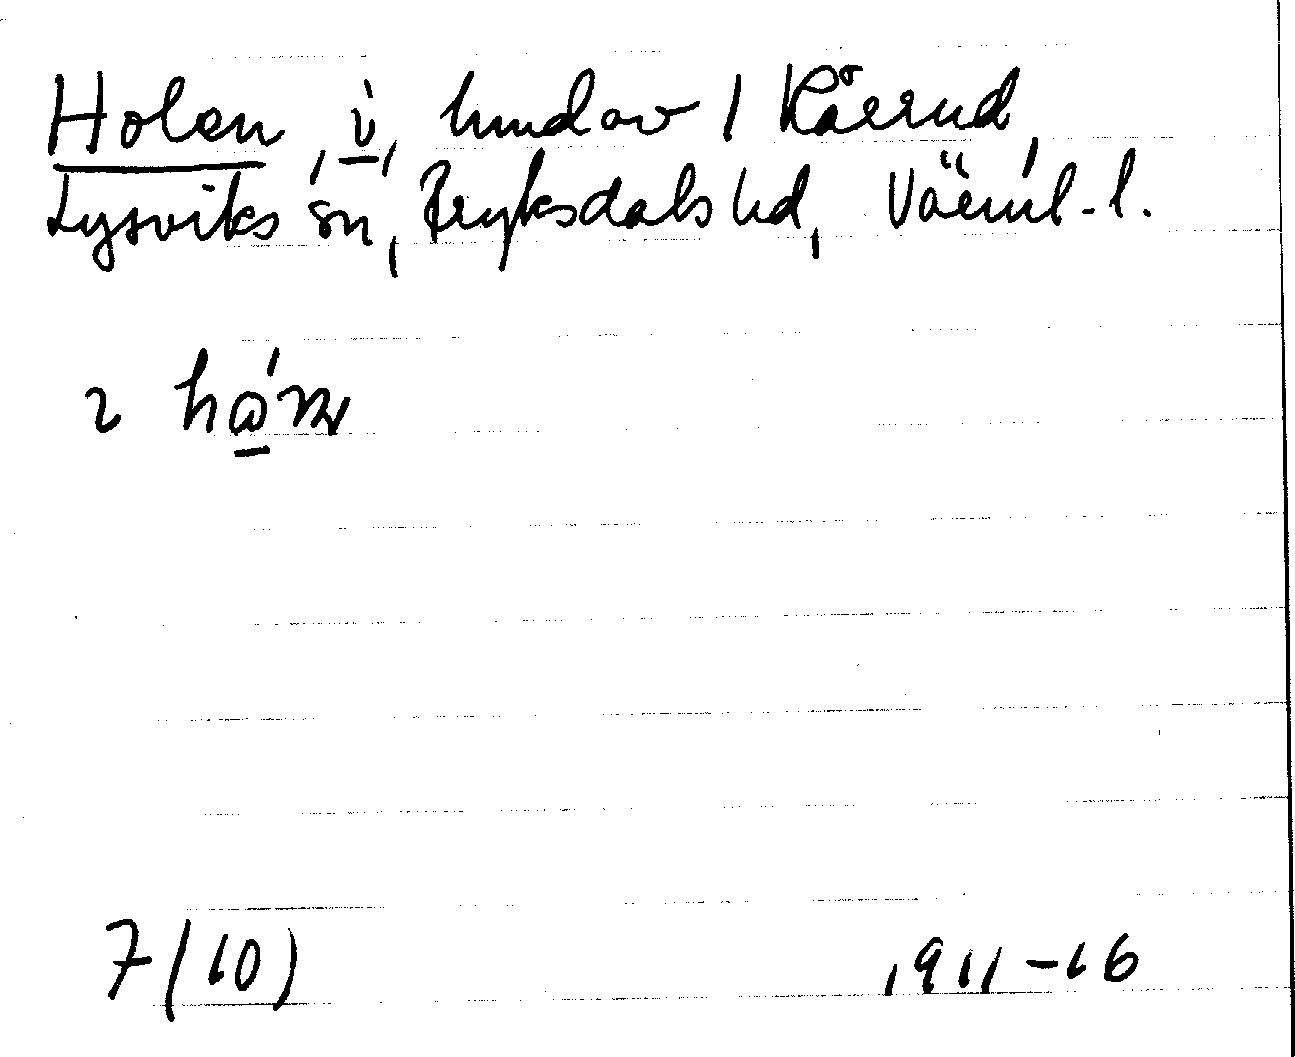 Holen, i, hmdav 1 Kårrud,
Lysviks sn, Fryksdals hd, Värml. l.
7/10)
1911-16